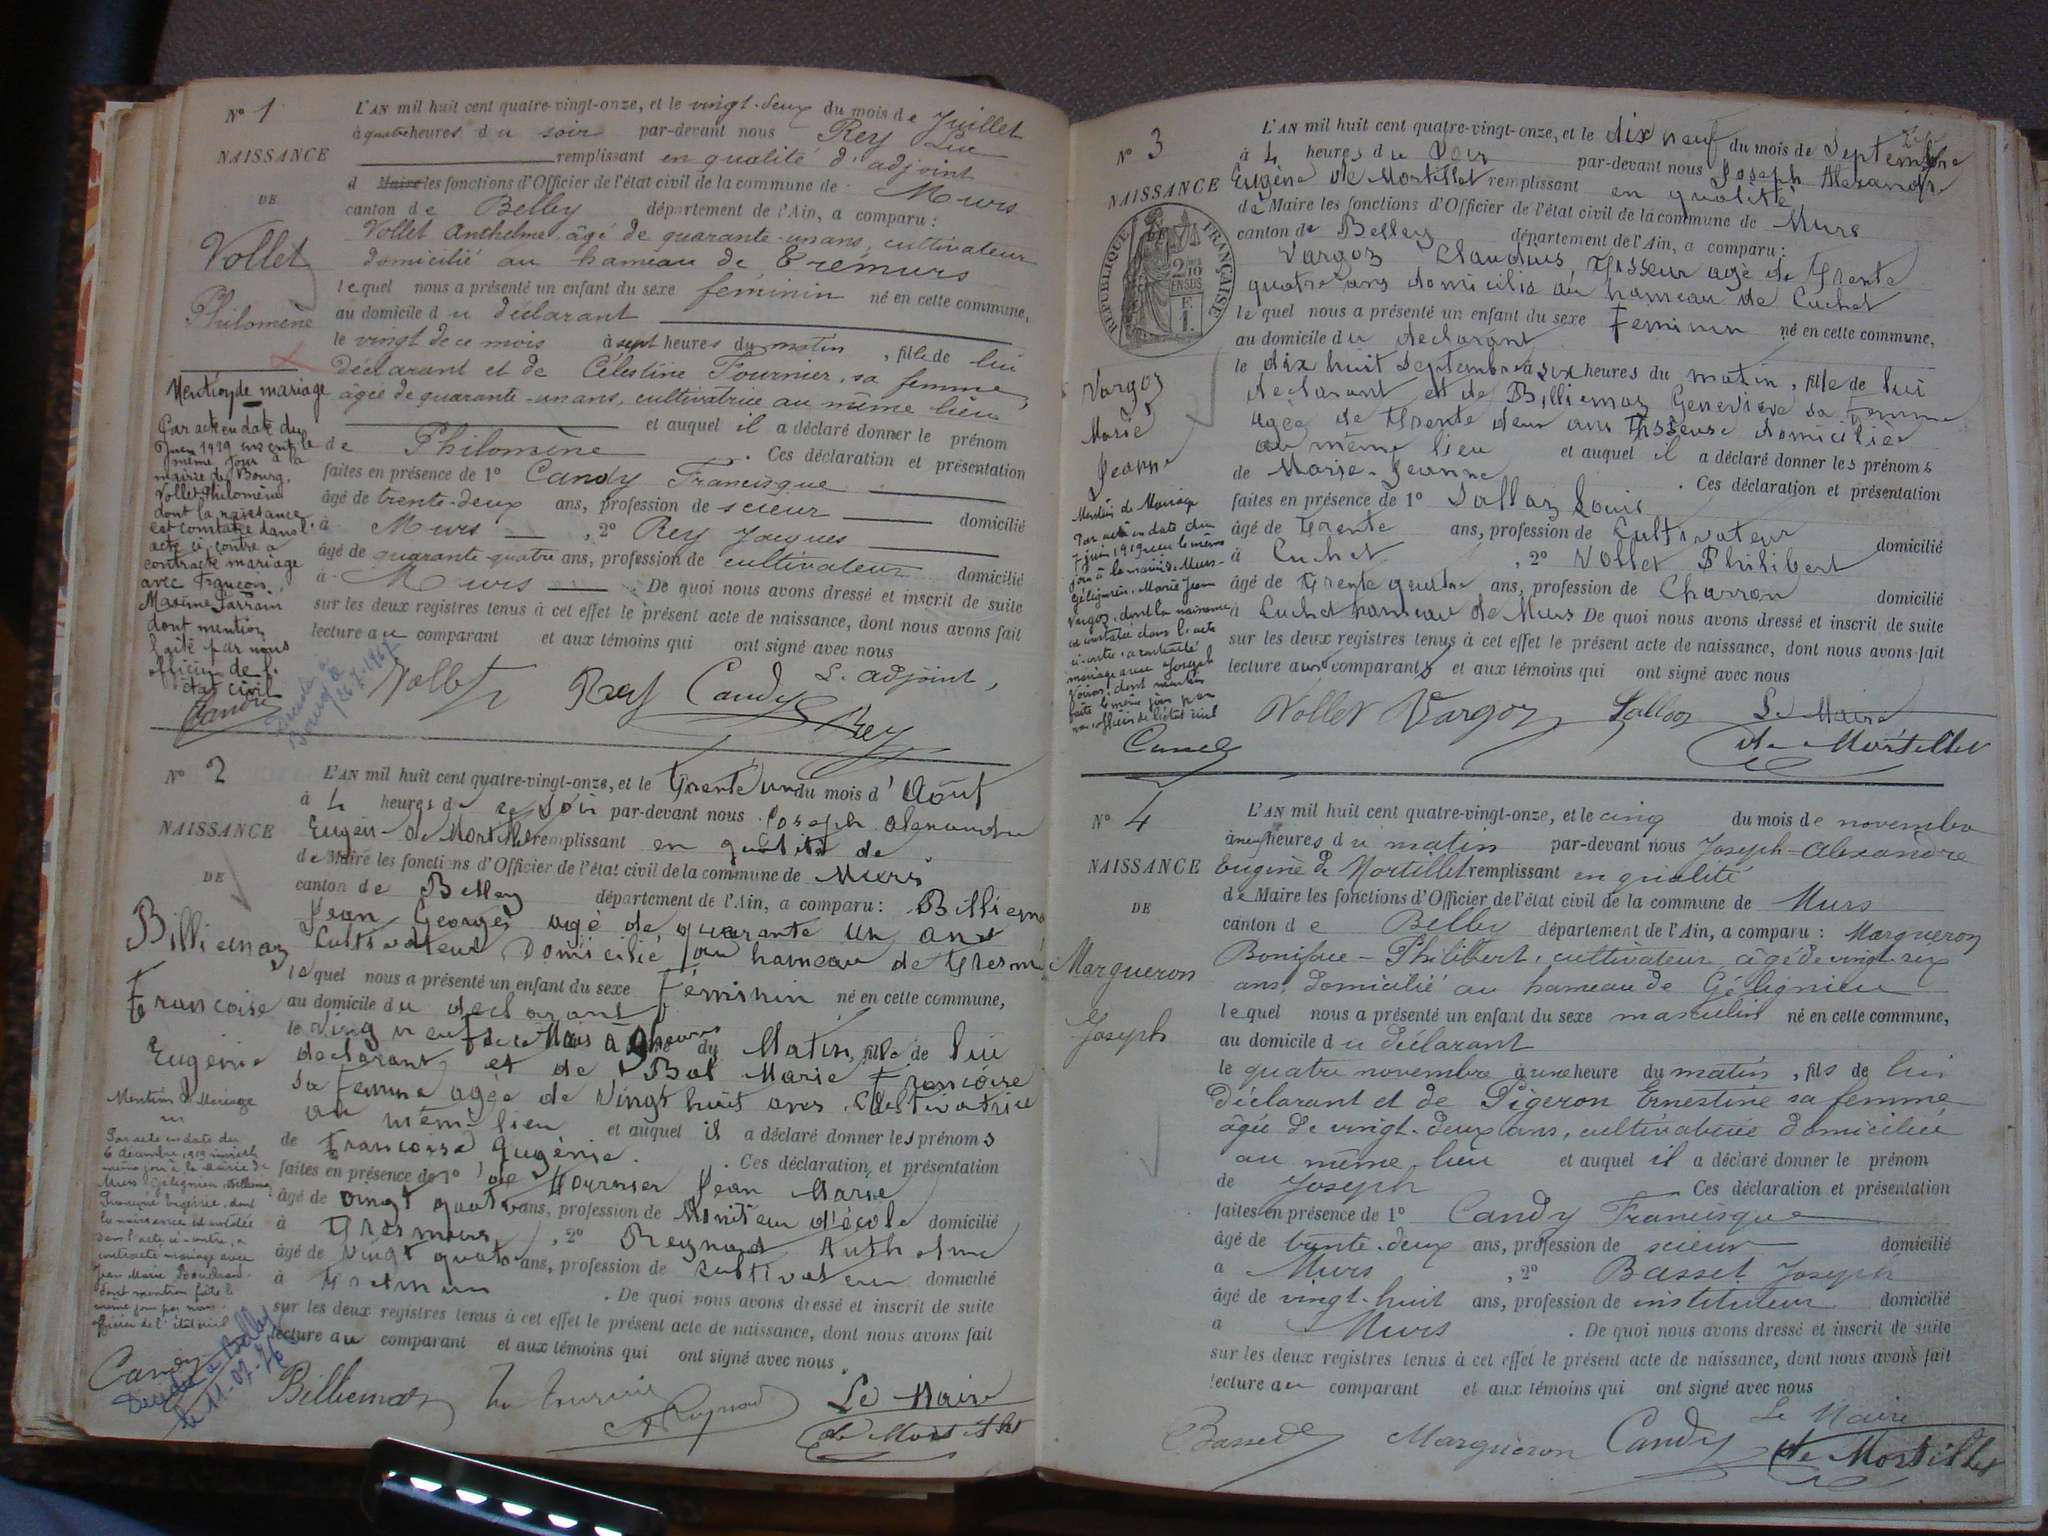 N° 1
NAISSANCE
DE
Vollet
Philomène
L'AN mil huit cent quatre-vingt-onze, et le vingt-deux du mois de Juillet
à quatre heures du soir par-devant nous Rey Luc
remplissant en qualité d'adjoint
d Maire les fonctions d'Officier de l'état civil de la commune de Murs
canton de Belley département de l'Ain, a comparu :
Vollet Anthelme âgé de quarante-un ans, cultivateur
domicilié au hameau de Trémurs
lequel nous a présenté un enfant du sexe feminin né en cette commune,
au domicile du déclarant
le vingt de ce mois à sept heures du matin, fille de lui
déclarant et de Célestine Fournier, sa femme,
âgée de quarante-un ans, cultivatrice au même lieu
et auquel il a déclaré donner le prénom
de Philomène. Ces déclaration et présentation
faites en présence de 1° Candy Francisque
âgé de trente-deux ans, profession de scieur domicilié
à Murs, 2° Rey Jacques
âgé de quarante-quatre ans, profession de cultivateur domicilié
à Murs. De quoi nous avons dressé et inscrit de suite
sur les deux registres tenus à cet effet le présent acte de naissance, dont nous avons fait
lecture au comparant et aux témoins qui ont signé avec nous
Vollet Rey Candy L'adjoint,
Rey
Mention de mariage
Par acte en date du
Juin 1919 inscrit le
même jour à la
mairie de Bourg,
Vollet Philomène
dont la naissance
est constatée dans l'
acte ci-contre a
contracté mariage
avec François
Maxime Parrain
dont mention
faite par nous
officier de l'
état civil
Candy
N° 2
NAISSANCE
DE
Billiemaz
Françoise
Eugénie
L'AN mil huit cent quatre-vingt-onze, et le trente un du mois d'Août
à 4 heures de ce soir par-devant nous Joseph Alexandre
Eugène de Mortillet remplissant en qualité de
de Maire les fonctions d'Officier de l'état civil de la commune de Murs
canton de Belley département de l'Ain, a comparu : Billiema
Jean Georges agé de quarante un ans
Cultivateur Domicilié au hameau de Tresmu
lequel nous a présenté un enfant du sexe féminin né en cette commune,
au domicile du declarant
le vingt neuf de ce Mois à 9 heures du Matin, fille de lui
declarant et de Bal Marie Françoise
sa femme agée de vingt huit ans Cultivatrice
au même lieu et auquel il a déclaré donner les prénoms
de Francoise Eugénie. Ces déclaration et présentation
faites en présence de 1° de Fournier Jean Marie
âgé de vingt quatre ans, profession de Moniteur d'école domicilié
à Tresmurs, 2° Reynaud Anthelme
âgé de vingt quatre ans, profession de cultivateur domicilié
à Tresmurs. De quoi nous avons dressé et inscrit de suite
sur les deux registres tenus à cet effet le présent acte de naissance, dont nous avons fait
lecture au comparant et aux témoins qui ont signé avec nous.
Billiemaz A Reynaud Le Maire
de Mortillet
Mention de Mariage
Par acte en date du
6 décembre 1919 inscrit le
même jour à la Mairie de
Murs Gélignieu, Billiemaz
Françoise Eugénie, dont
la naissance est constatée
dans l'acte ci-contre, a
contracté mariage avec
Jean Marie
dont mention faite le
même jour par nous
officier de l'état civil
Candy
Décédée à Belley
le 11-02-76
N° 3
NAISSANCE
RÉPUBLIQUE FRANÇAISE
Vargoz
Marie
Jeanne
L'AN mil huit cent quatre-vingt-onze, et le dix neuf du mois de Septembre
à 4 heures du Soir par-devant nous Joseph Alexandre
Eugène de Mortillet remplissant en qualité
de Maire les fonctions d'Officier de l'état civil de la commune de Murs
canton de Belley département de l'Ain, a comparu :
Vargoz Claudius, Tisseur agé de Trente
quatre ans domicilié au hameau de Cuchet
lequel nous a présenté un enfant du sexe Feminin né en cette commune,
au domicile du declarant
le dix huit Septembre à six heures du matin, fille de lui
declarant et de Billiemaz Geneviève sa femme
agée de Trente deux ans Tisseuse domiciliée
au même lieu et auquel il a déclaré donner les prénoms
de Marie-Jeanne. Ces déclaration et présentation
faites en présence de 1° Sallaz Louis
âgé de Trente ans, profession de Cultivateur domicilié
à Cuchet, 2° Vollet Philibert
âgé de Trente quatre ans, profession de Charron domicilié
à Cuchet hameau de Murs De quoi nous avons dressé et inscrit de suite
sur les deux registres tenus à cet effet le présent acte de naissance, dont nous avons fait
lecture aux comparants et aux témoins qui ont signé avec nous
Vollet Vargoz Sallaz Le Maire
de Mortillet
Mention de Mariage
Par acte en date du
7 juin 1919 reçu le même
jour à la mairie de Murs-
Gélignieu, Marie Jeanne
Vargoz, dont la naissance
est constatée dans l'acte
ci-contre, a contracté
mariage avec Joseph
dont mention
faite le même jour par
nous officier de l'état civil
Candy
N° 4
NAISSANCE
DE
Margueron
Joseph
L'AN mil huit cent quatre-vingt-onze, et le cinq du mois de novembre
à neuf heures du matin par-devant nous Joseph-Alexandre
Eugène de Mortillet remplissant en qualité
de Maire les fonctions d'Officier de l'état civil de la commune de Murs
canton de Belley département de l'Ain, a comparu : Margueron
Boniface-Philibert, cultivateur âgé de vingt-six
ans, domicilié au hameau de Gélignieu
lequel nous a présenté un enfant du sexe masculin né en cette commune,
au domicile du déclarant
le quatre novembre à une heure du matin, fils de lui
Déclarant et de Pigeron Ernestine sa femme
âgée de vingt-deux ans, cultivatrice domiciliée
au même lieu et auquel il a déclaré donner le prénom
de Joseph Ces déclaration et présentation
faites en présence de 1° Candy Francisque
âgé de trente-deux ans, profession de scieur domicilié
à Murs, 2° Basset Joseph
âgé de vingt-huit ans, profession de instituteur domicilié
à Murs. De quoi nous avons dressé et inscrit de suite
sur les deux registres tenus à cet effet le présent acte de naissance, dont nous avons fait
lecture au comparant et aux témoins qui ont signé avec nous
Basset Margueron Candy Le Maire
de Mortillet